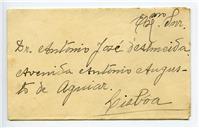 Exmo Snr.
Dr. António José de Almeida
Avenida António Augus-
to de Aguiar.
Lisboa